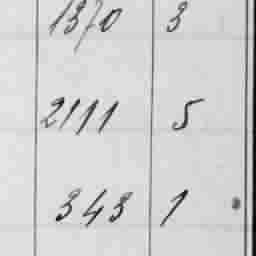 1370 3
2111 5
343 1